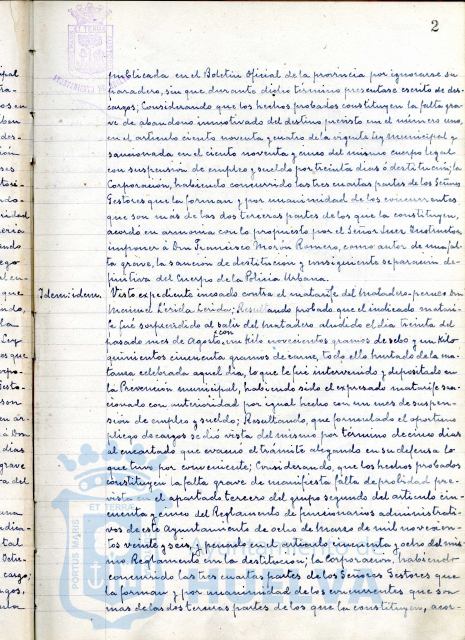 2
publicada en el Boletín Oficial de la provincia por ignorarse su
paradero, sin que durante dicho término presentase escrito de des-
cargos; Considerando que los hechos probados constituyen la falta gra-
ve de abandono inmotivado del destino previsto en el número uno,
en el artículo ciento noventa y cuatro de la vigente Ley municipal y
sancionada en el ciento noventa y cinco del mismo cuerpo legal
con suspensión de empleo y sueldo por treinta días ó destitución; la
Corporación, habiendo concurrido las tres cuartas partes de los Señores
Gestores que la forman y por unanimidad de los concurrentes
que son más de las dos terceras partes de los que la constituyen,
acordó en armonía con lo propuesto por el Señor Juez Instructor
imponer á Don Francisco Morón Romero, como autor de una fal-
ta grave, la sanción de destitución y consiguiente separación de-
finitiva del Cuerpo de la Policía Urbana.
Idem: idem. Visto expediente incoado contra el matarife del Matadero
Resultando probado que el indicado matari-
fe fué sorprendido al salir del matadero aludido el día treinta del
pasado mes de Agosto, con un kilo novecientos gramos de sebo y un kilo
quinientos cincuenta gramos de carne, todo ello hurtado de la ma-
tanza celebrada aquel día, lo que le fué intervenido y depositado en
la Prevención municipal, habiendo sido el expresado matarife san-
cionado con anterioridad por igual hecho con un mes de suspen-
sión de empleo y sueldo; Resultando, que formulado el oportuno
pliego de cargos se dió vista del mismo por término de cinco días
al encartado que evacuó el trámite alegando en su defensa lo
que tuvo por conveniente; Considerando, que los hechos probados
constituyen la falta grave de manifiesta falta de probidad pre-
vista en el apartado tercero del grupo segundo del artículo cin-
cuenta y cinco del Reglamento de funcionarios administrati-
vos de este Ayuntamiento de ocho de marzo de mil novecien-
tos veinte y seis, y penado en el artículo cincuenta y ocho del mis-
mo Reglamento con la destitución; la Corporación, habiendo
concurrido las tres cuartas partes de los Señores Gestores que
la forman y por unanimidad de los concurrentes que son
más de las dos terceras partes de los que la constituyen, acor-
ET TERRA
PORTUS MARIS
Ayuntamiento de